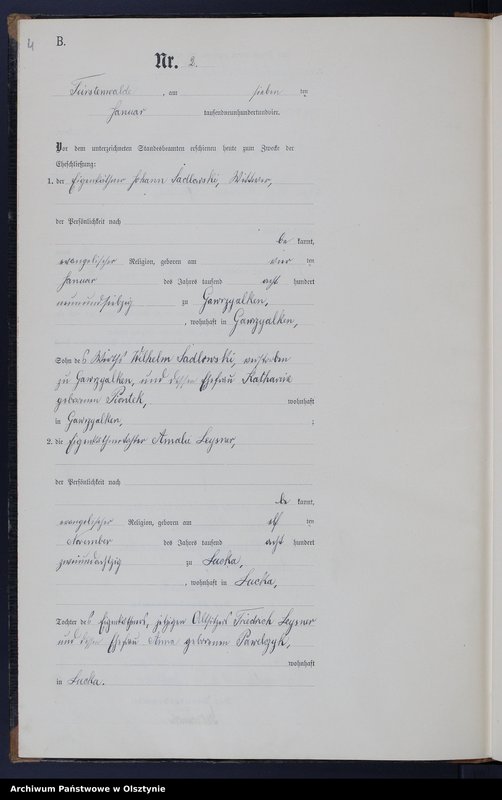 4
B.
Nr. 2.
Fürstenwalde, am sieben ten
Januar tausendneunhundertundvier.
Vor dem unterzeichneten Standesbeamten erschienen heute zum Zwecke der
Eheschließung:
1. der Eigenkäthner Johann Sadlowski, Wittwer,
der Persönlichkeit nach
be kannt,
evangelischer Religion, geboren am vier ten
Januar des Jahres tausend acht hundert
neunundsiebzig zu Gawrzyalken,
, wohnhaft in Gawrzyalken,
Sohn des Wirths Wilhelm Sadlowski, verstorben
zu Gawrzyalken, und dessen Ehefrau Katharine
geborenen Piontek, wohnhaft
in Gawrzyalken, ;
2. die Eigenkäthnertochter Amalie Leyszner,
der Persönlichkeit nach
be kannt,
evangelischer Religion, geboren am elf ten
November des Jahres tausend acht hundert
zweiundachtzig zu Lucka,
, wohnhaft in Lucka,
Tochter des Eigenkäthners, jetzigen Altsitzers Friedrich
und dessen Ehefrau Anna geborenen Pawelzyk,
wohnhaft
in Lucka.
Archiwum Państwowe w Olsztynie